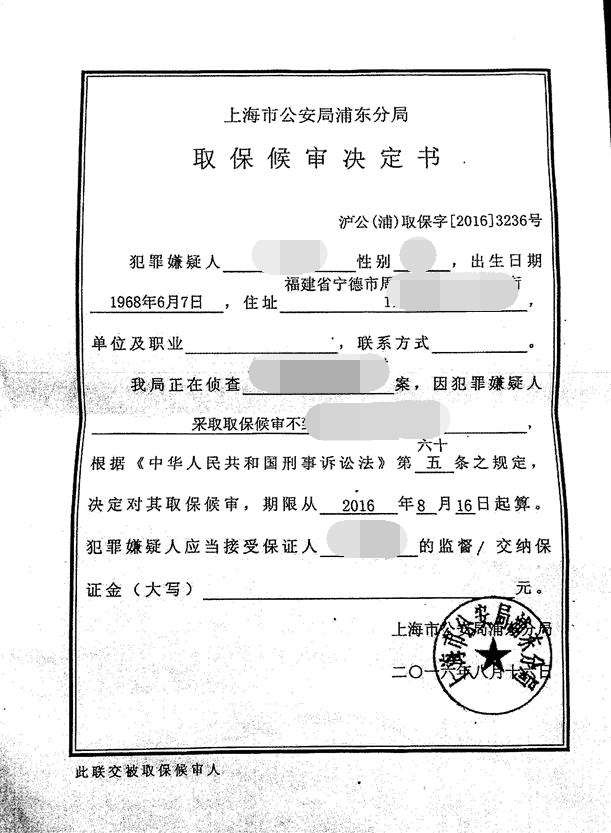 上海市公安局浦东分局
取保候审决定书
沪公(浦)取保字[2016]3236号
犯罪嫌疑人 性别 ，出生日期
福建省宁德市
1968年6月7日 ，住址 1 ，
单位及职业 ，联系方式 。
我局正在侦查 案，因犯罪嫌疑人
采取取保候审不 ，
六十
根据《中华人民共和国刑事诉讼法》第 五 条之规定，
决定对其取保候审，期限从 2016 年 8 月 16 日起算。
犯罪嫌疑人应当接受保证人 的监督/ 交纳保
证金（大写） 元。
上海市公安局浦东分局
二〇一六年八月十 日
上海市公安局浦东分局
此联交被取保候审人